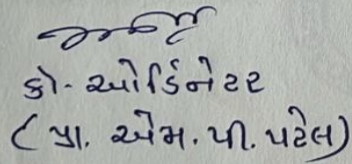 કો-ઓર્ડિનેટર
(પ્રા. એમ. પી. પટેલ)